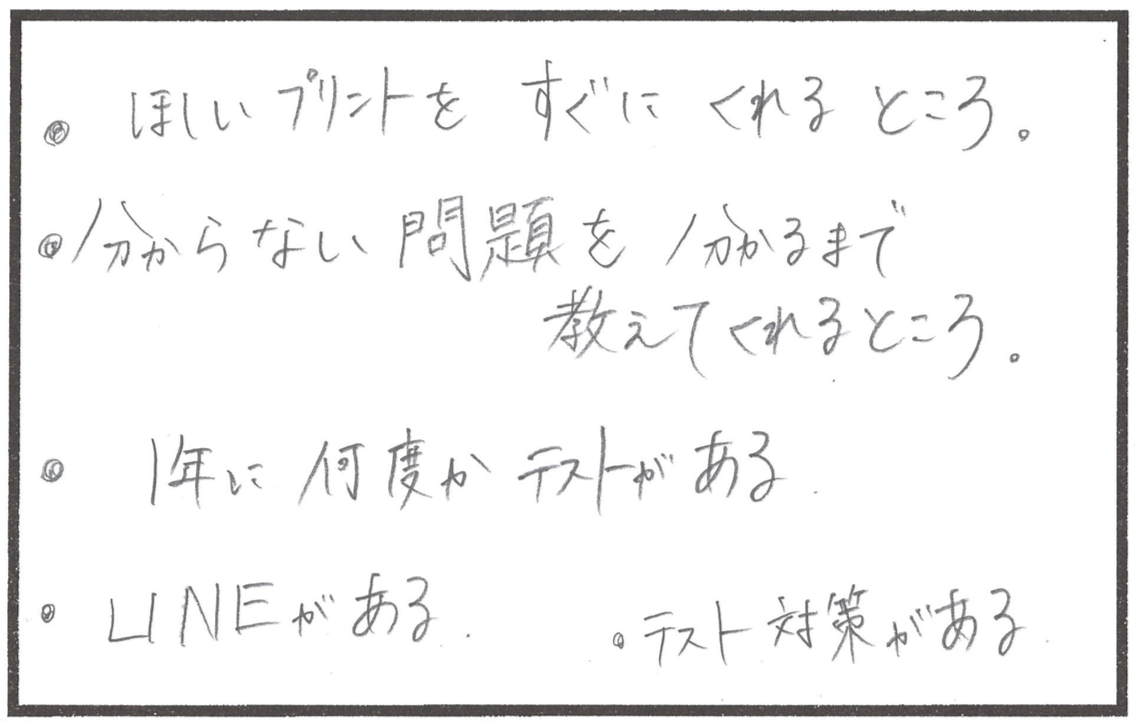 ・ほしいプリントを すぐに くれる ところ。
・分からない 問題を 分かるまで
教えてくれるところ。
・1年に 何度か テストが ある.
・LINEが ある.
・テスト 対策が ある.